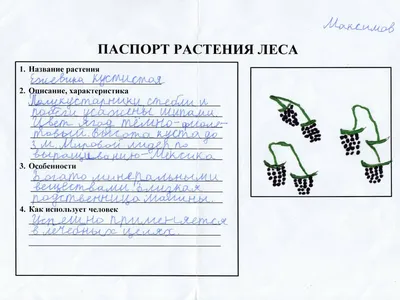 Максимов
ПАСПОРТ РАСТЕНИЯ ЛЕСА
1. Название растения
Ежевика кустистая
2. Описание, характеристика
Полукустарники стебли и
побеги усажены шипами.
Цвет ягод тёмно-фиоле-
товый. Высота куста до
3 м. Мировой лидер по
выращиванию-Мексика
3. Особенности
Богато минеральными
веществами. Близкая
родственница малины.
4. Как использует человек
Успешно применяется
в лечебных целях.